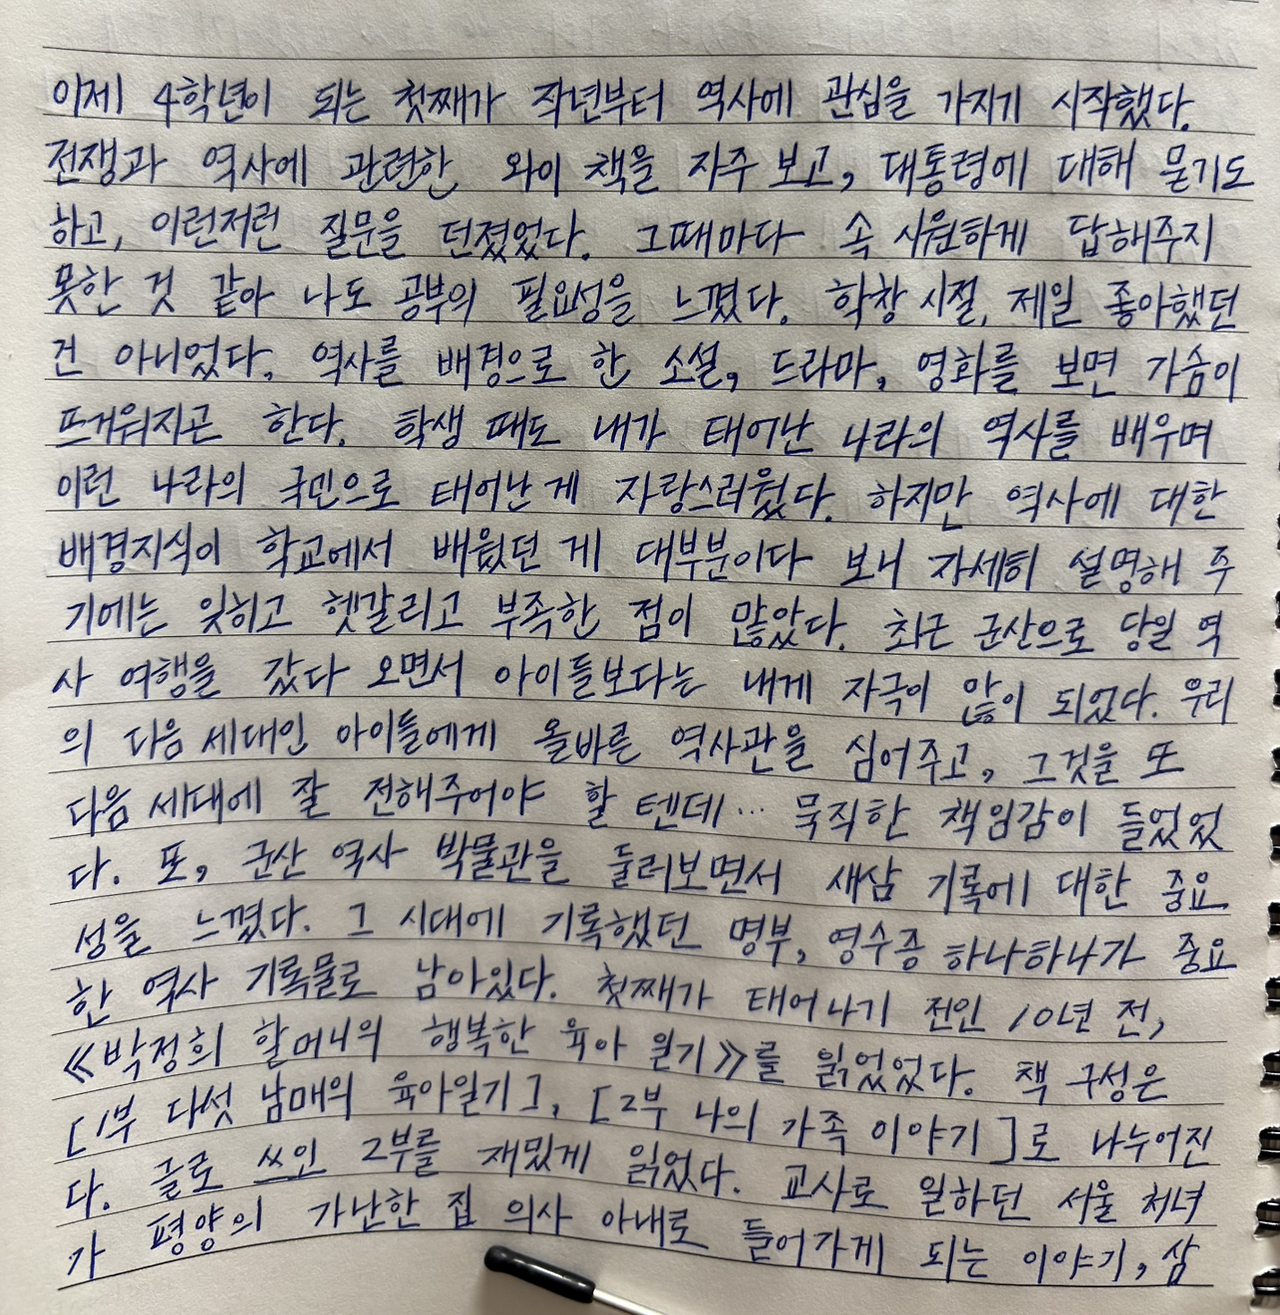 이제 4학년이 되는 첫째가 작년부터 역사에 관심을 가지기 시작했다.
전쟁과 역사에 관련한 와이 책을 자주 보고, 대통령에 대해 묻기도
하고, 이런저런 질문을 던졌었다. 그때마다 속 시원하게 답해주지
못한 것 같아 나도 공부의 필요성을 느꼈다. 학창 시절, 제일 좋아했던
건 아니었다. 역사를 배경으로 한 소설, 드라마, 영화를 보면 가슴이
뜨거워지곤 한다. 학생 때도 내가 태어난 나라의 역사를 배우며
이런 나라의 국민으로 태어난 게 자랑스러웠다. 하지만 역사에 대한
배경지식이 학교에서 배웠던 게 대부분이다 보니 자세히 설명해 주
기에는 잊히고 헷갈리고 부족한 점이 많았다. 최근 군산으로 당일 역
사 여행을 갔다 오면서 아이들보다는 내게 자극이 많이 되었다. 우리
의 다음 세대인 아이들에게 올바른 역사관을 심어주고, 그것을 또
다음 세대에 잘 전해주어야 할 텐데… 묵직한 책임감이 들었었
다. 또, 군산 역사 박물관을 둘러보면서 새삼 기록에 대한 중요
성을 느꼈다. 그 시대에 기록했던 명부, 영수증 하나하나가 중요
한 역사 기록물로 남아있다. 첫째가 태어나기 전인 10년 전,
《박정희 할머니의 행복한 육아 일기》를 읽었었다. 책 구성은
[1부 다섯 남매의 육아일기], [2부 나의 가족 이야기]로 나누어진
다. 글로 쓰인 2부를 재밌게 읽었다. 교사로 일하던 서울 처녀
가 평양의 가난한 집 의사 아내로 들어가게 되는 이야기, 삼